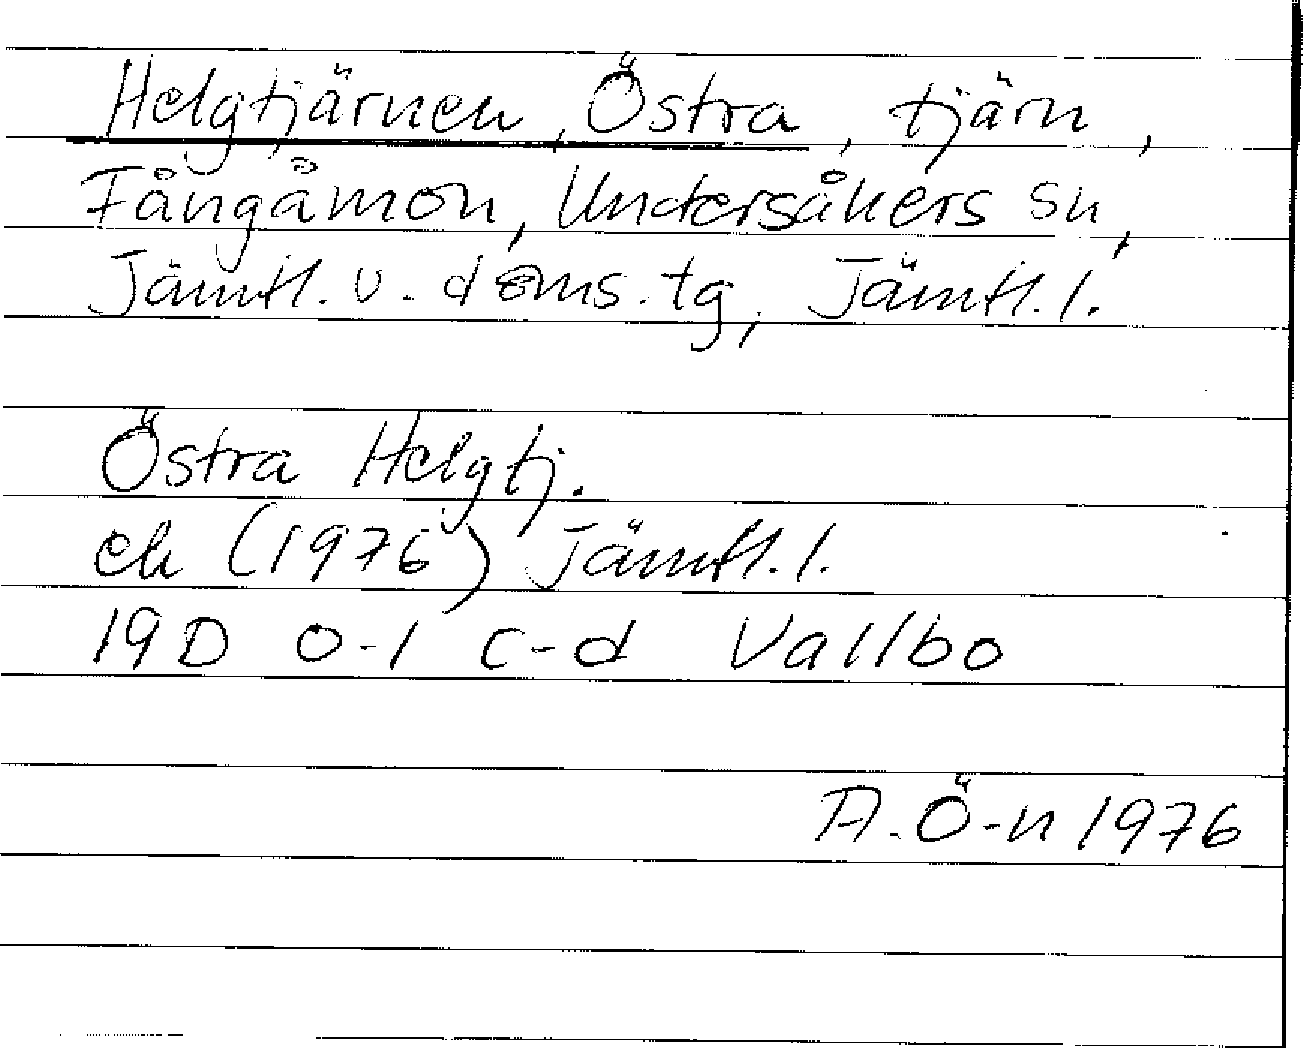 Helgtjärnen, Östra, tjärn,
Fångåmon, Undersåkers sn,
Jämtl. v. doms. tg, Jämtl. l.
Östra Helgtj.
ek (1976) Jämtl. l.
19D 0-1 c-d Vallbo
A. Ö-n 1976